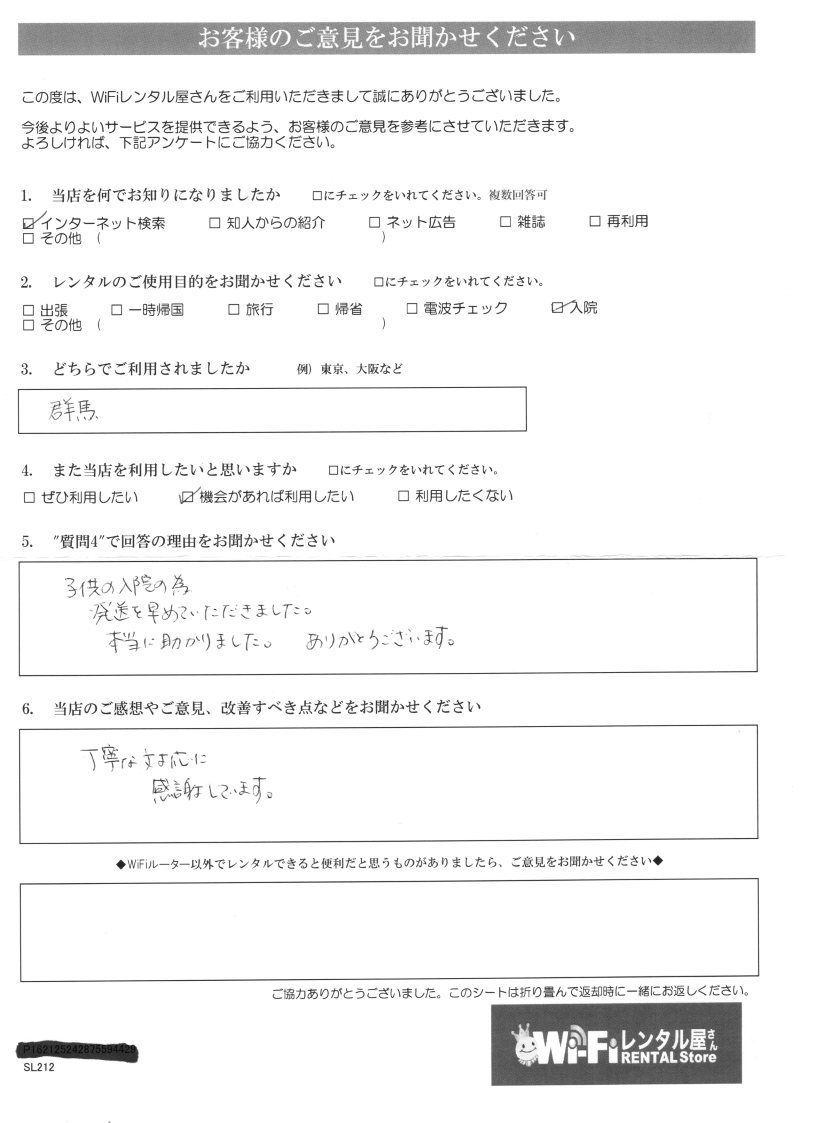 お客様のご意見をお聞かせください
この度は、WiFiレンタル屋さんをご利用いただきまして誠にありがとうございました。
今後よりよいサービスを提供できるよう、お客様のご意見を参考にさせていただきます。
よろしければ、下記アンケートにご協力ください。
1. 当店を何でお知りになりましたか □にチェックをいれてください。複数回答可
☑インターネット検索 □ 知人からの紹介 □ ネット広告 □ 雑誌 □ 再利用
□ その他 ( )
2. レンタルのご使用目的をお聞かせください □にチェックをいれてください。
□ 出張 □ 一時帰国 □ 旅行 □ 帰省 □ 電波チェック ☑入院
□ その他 ( )
3. どちらでご利用されましたか 例）東京、大阪など
群馬
4. また当店を利用したいと思いますか □にチェックをいれてください。
□ ぜひ利用したい ☑機会があれば利用したい □ 利用したくない
5. ″質問4″で回答の理由をお聞かせください
子供の入院の為
発送を早めていただきました。
本当に助かりました。 ありがとうございます。
6. 当店のご感想やご意見、改善すべき点などをお聞かせください
丁寧な対応に
感謝しています。
◆WiFiルーター以外でレンタルできると便利だと思うものがありましたら、ご意見をお聞かせください◆
ご協力ありがとうございました。このシートは折り畳んで返却時に一緒にお返しください。
SL212
Wi-Fiレンタル屋さん
RENTAL Store